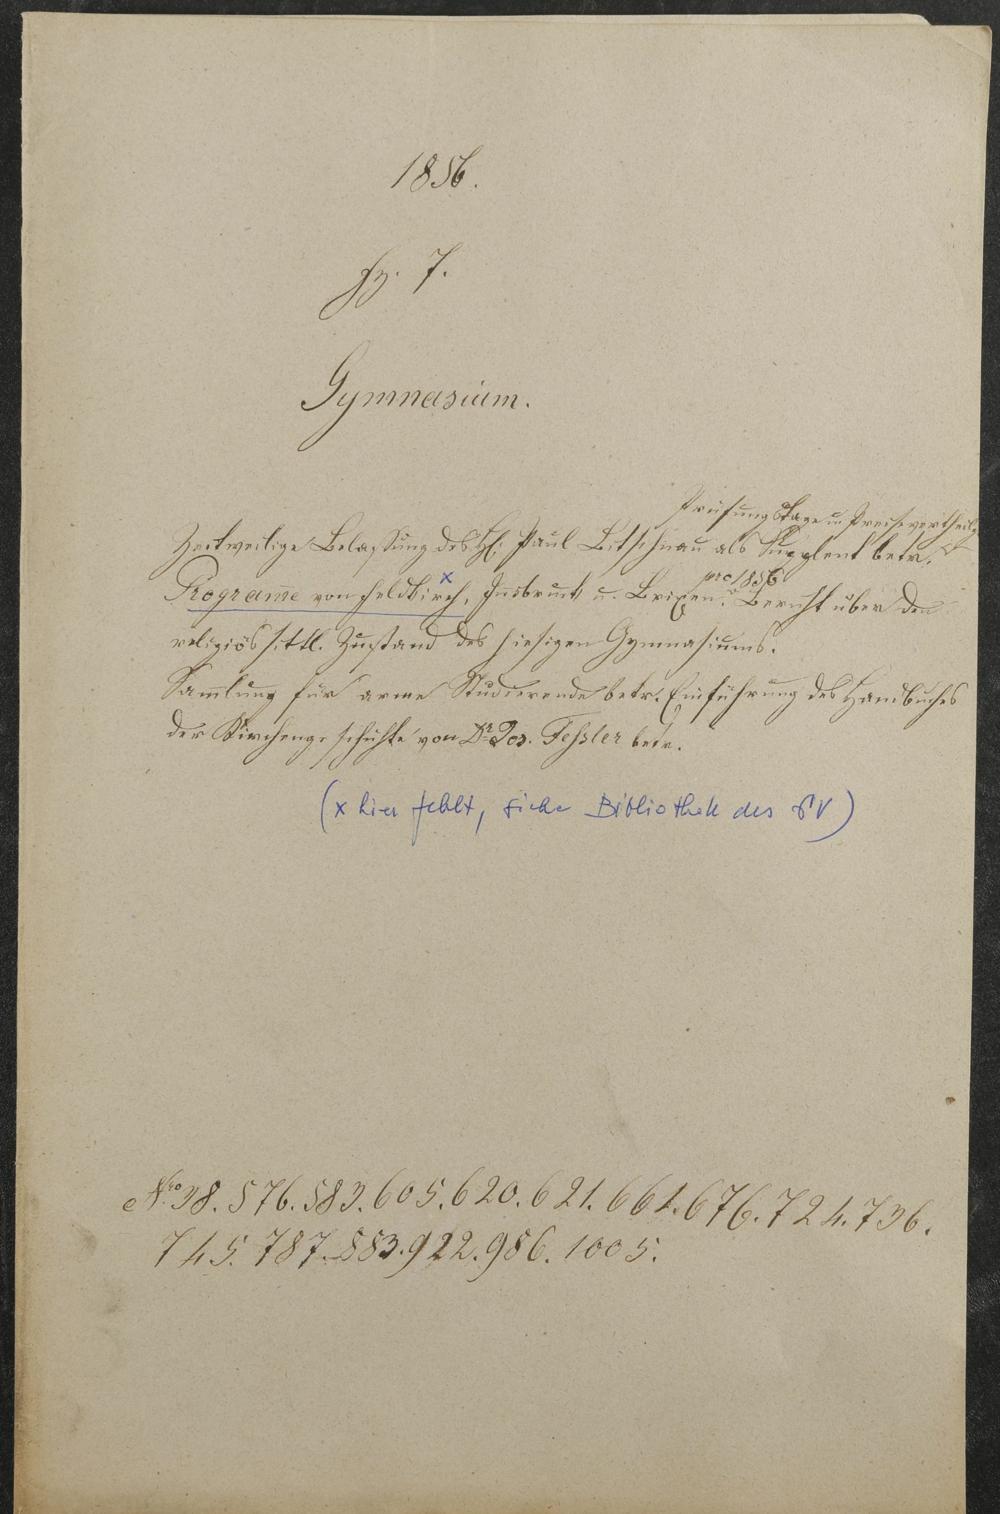 1856.
Fz. 7.
Gymnasium.
Prüfungstage u. Preisevertheilg
Zeitweilige Belaßung des H. Paul Bitschnau als Supplent betr.
pro 1856
Programe von Feldkirch, x Insbruck u. Brixen. Bericht über den
religiös sittl. Zustand des hiesigen Gymnasiums.
Samlung für arme Studierende betr. Einführung des Handbuches
der Kirchengeschichte von Dr. Jos. Feßler betr.
(x hier fehlt, siehe Bibliothek des GV)
Nro 38. 576. 583. 605. 620. 621. 661. 676. 724. 736.
745. 787. 883. 922. 956. 1005.